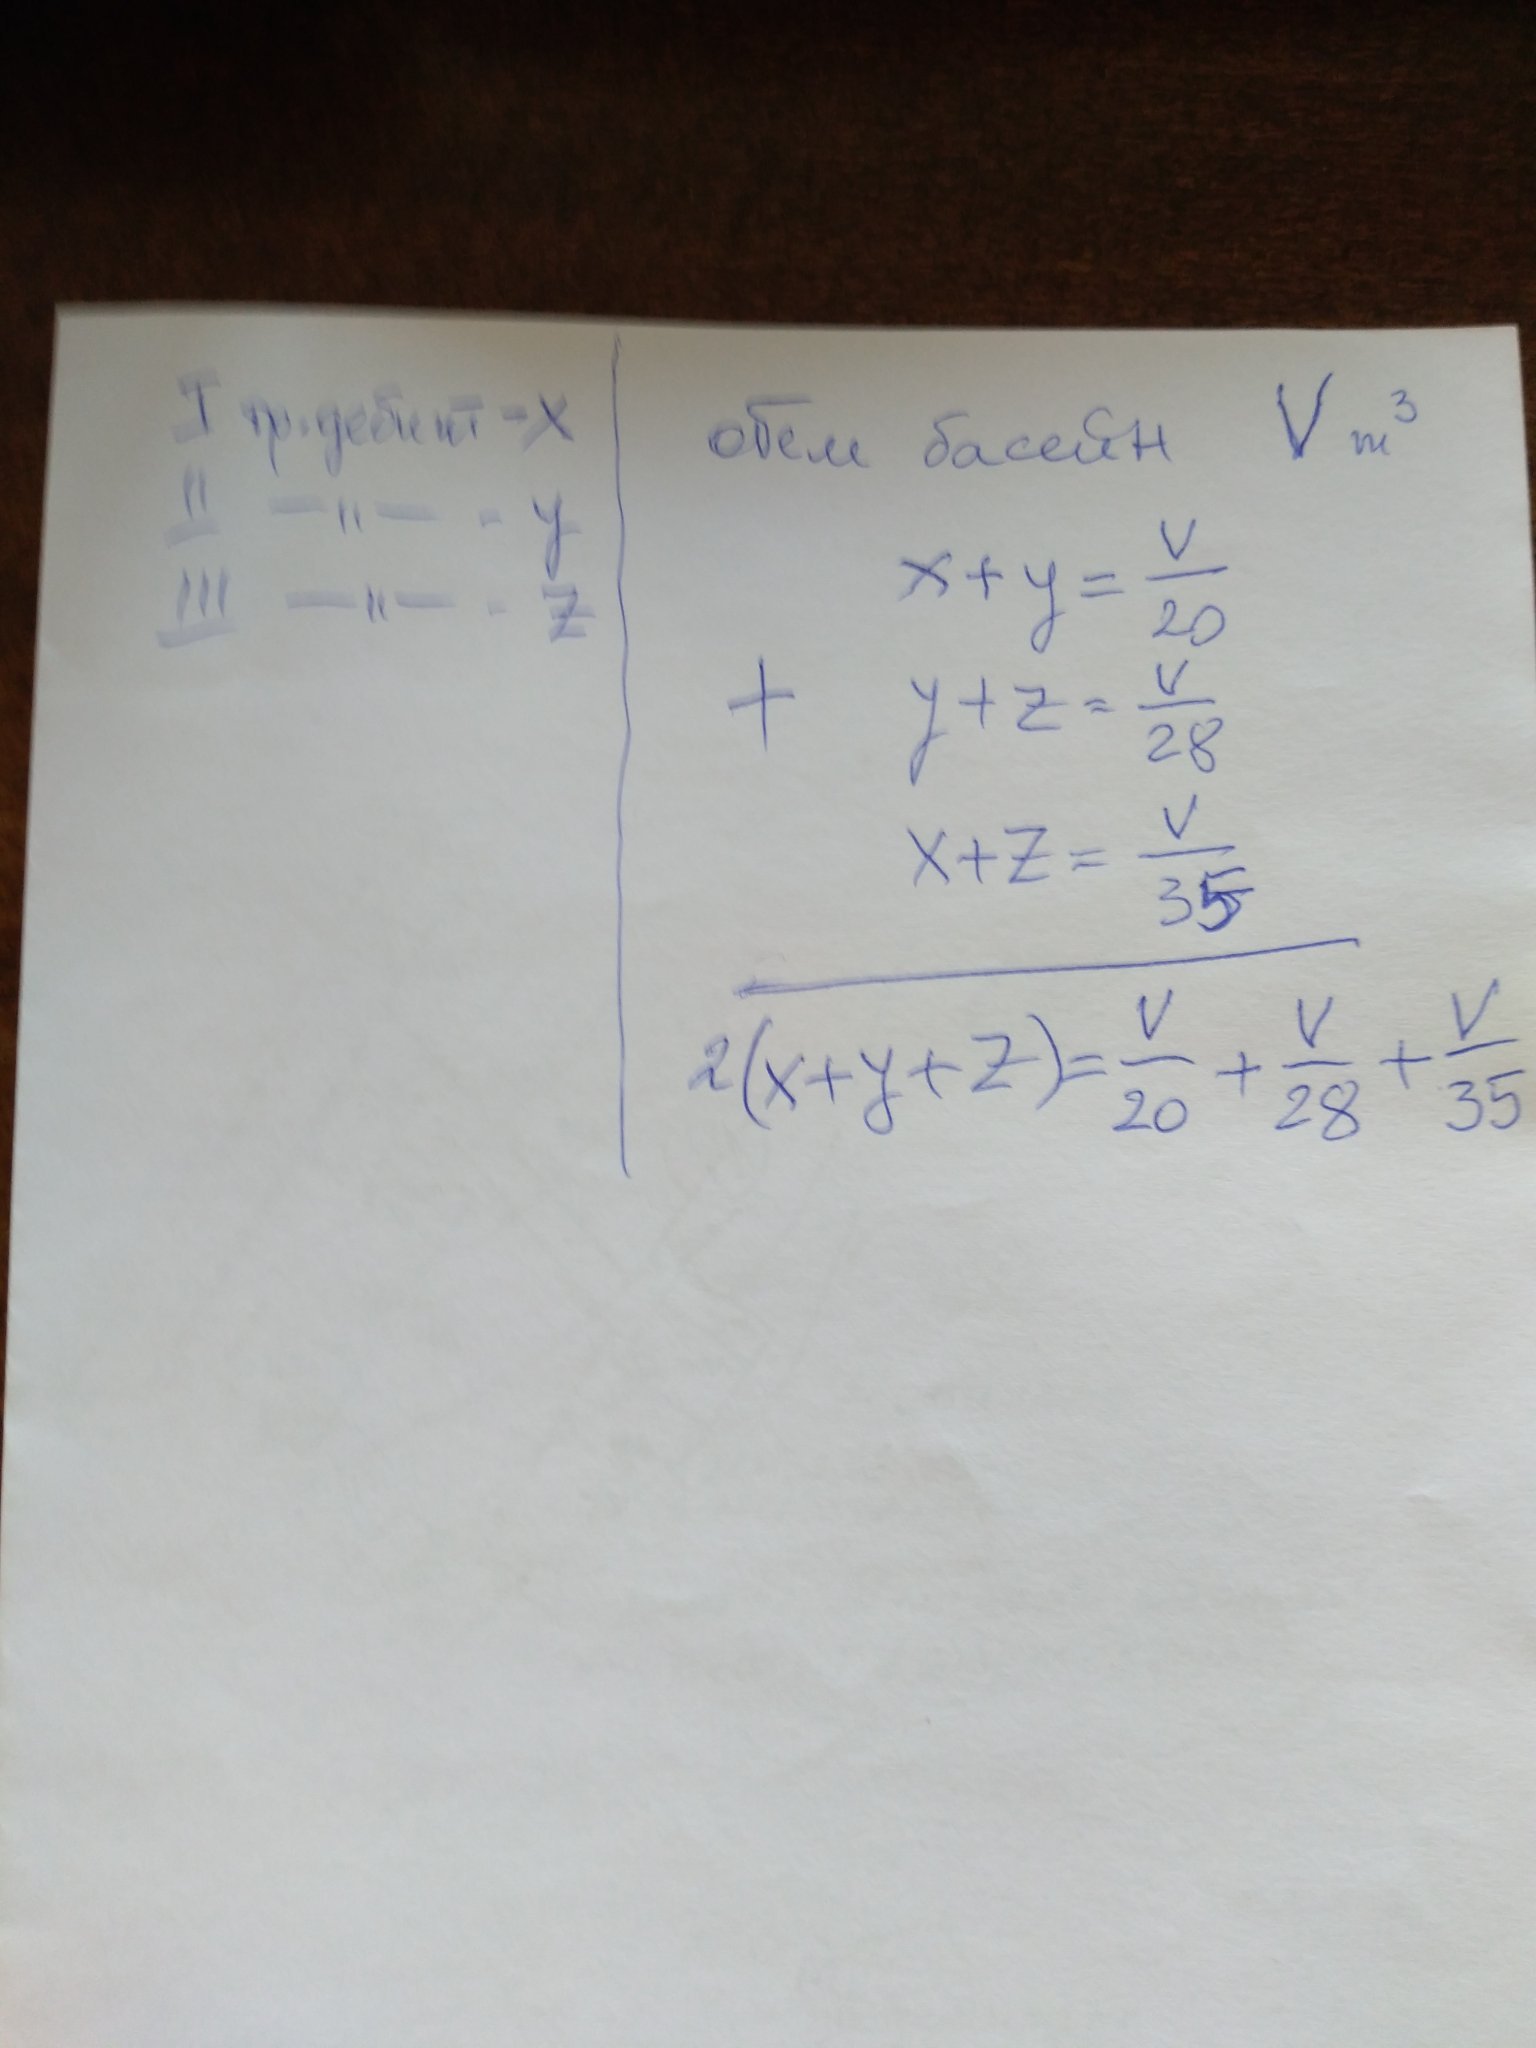 I тр. дебит - x
II —"— - y
III —"— - z
обем басейн V m³
x + y = V/20
+ y + z = V/28
x + z = V/35
2(x + y + z) = V/20 + V/28 + V/35